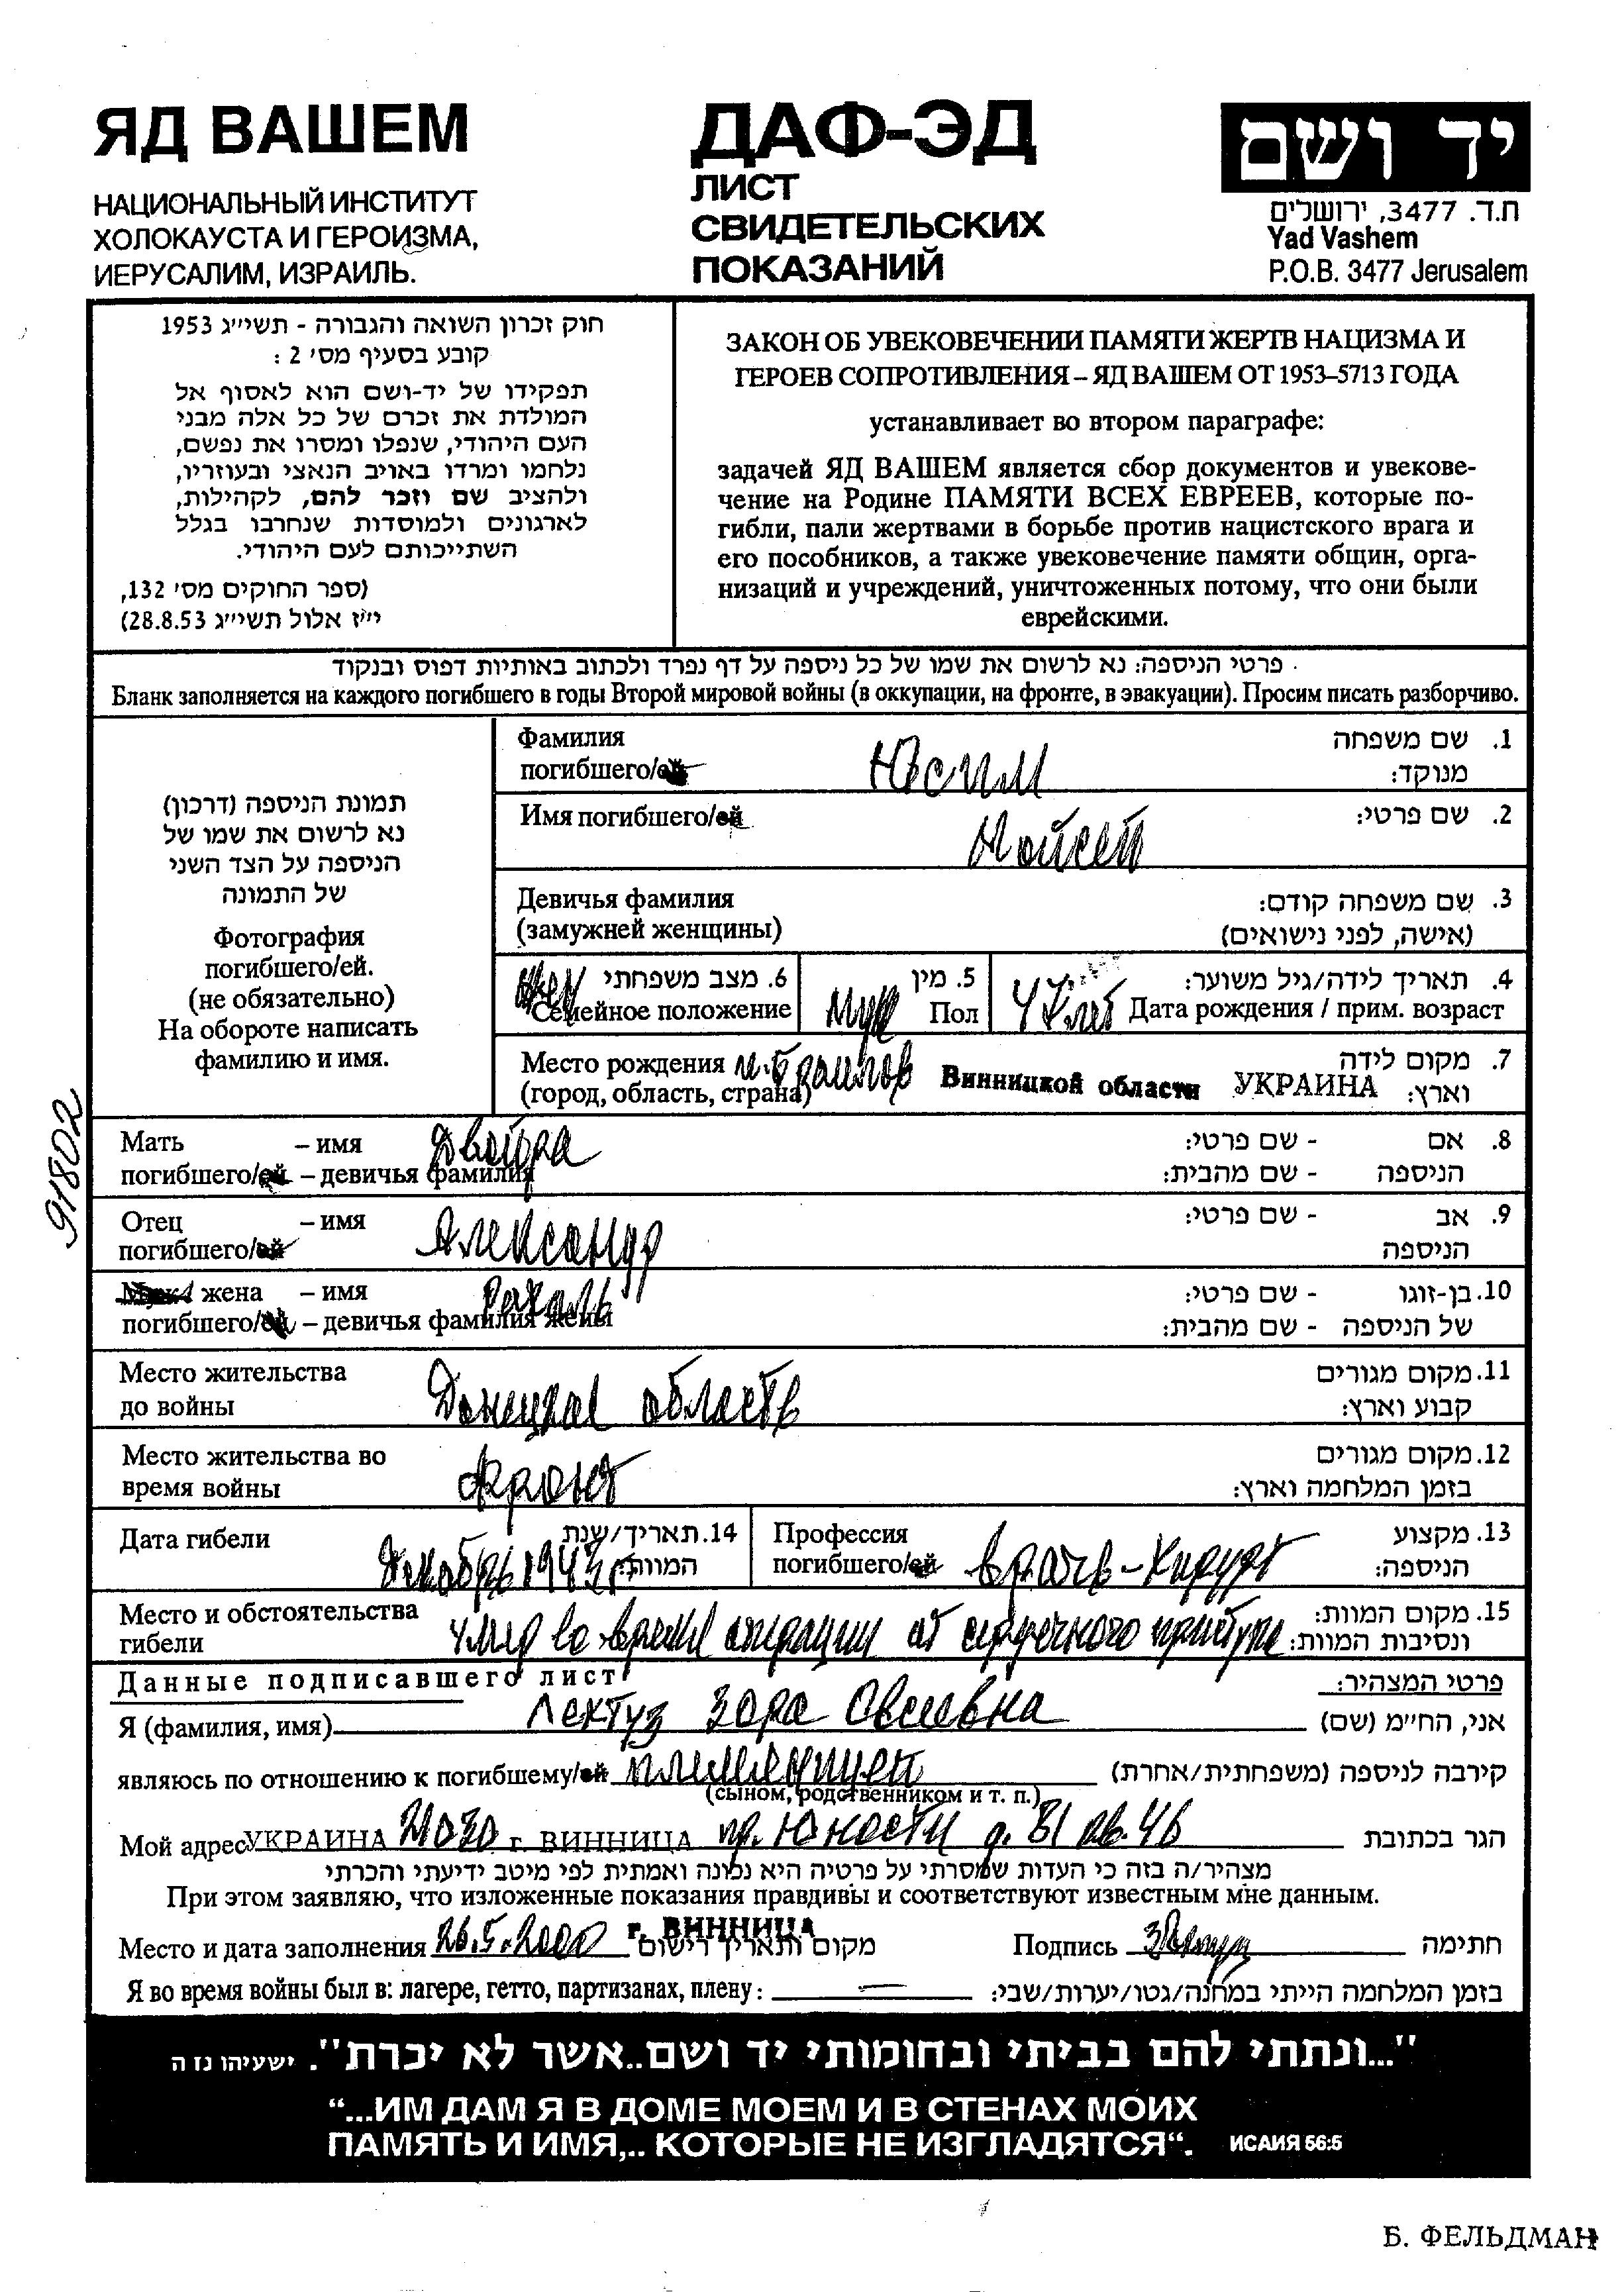 ЯД ВАШЕМ
НАЦИОНАЛЬНЫЙ ИНСТИТУТ
ХОЛОКАУСТА И ГЕРОИЗМА,
ИЕРУСАЛИМ, ИЗРАИЛЬ.
ДАФ-ЭД
ЛИСТ
СВИДЕТЕЛЬСКИХ
ПОКАЗАНИЙ
יד ושם
ת.ד. 3477, ירושלים
Yad Vashem
P.O.B. 3477 Jerusalem
חוק זכרון השואה והגבורה - תשי״ג 1953
קובע בסעיף מס׳ 2 :
תפקידו של יד-ושם הוא לאסוף אל
המולדת את זכרם של כל אלה מבני
העם היהודי, שנפלו ומסרו את נפשם,
נלחמו ומרדו באויב הנאצי ובעוזריו,
ולהציב שם וזכר להם, לקהילות,
לארגונים ולמוסדות שנחרבו בגלל
השתייכותם לעם היהודי.
(ספר החוקים מס׳ 132,
י״ז אלול תשי״ג 28.8.53)
ЗАКОН ОБ УВЕКОВЕЧЕНИИ ПАМЯТИ ЖЕРТВ НАЦИЗМА И
ГЕРОЕВ СОПРОТИВЛЕНИЯ – ЯД ВАШЕМ ОТ 1953–5713 ГОДА
устанавливает во втором параграфе:
задачей ЯД ВАШЕМ является сбор документов и увекове-
чение на Родине ПАМЯТИ ВСЕХ ЕВРЕЕВ, которые по-
гибли, пали жертвами в борьбе против нацистского врага и
его пособников, а также увековечение памяти общин, орга-
низаций и учреждений, уничтоженных потому, что они были
еврейскими.
פרטי הניספה: נא לרשום את שמו של כל ניספה על דף נפרד ולכתוב באותיות דפוס ובנקוד
Бланк заполняется на каждого погибшего в годы Второй мировой войны (в оккупации, на фронте, в эвакуации). Просим писать разборчиво.
תמונת הניספה (דרכון)
נא לרשום את שמו של
הניספה על הצד השני
של התמונה
Фотография
погибшего/ей.
(не обязательно)
На обороте написать
фамилию и имя.
Фамилия
погибшего/ей Юсим
1. שם משפחה
מנוקד:
Имя погибшего/ей Мойсей
2. שם פרטי:
Девичья фамилия
(замужней женщины)
3. שם משפחה קודם:
(אישה, לפני נישואים)
6. מצב משפחתי
Семейное положение жен
5. מין
Пол муж
4. תאריך לידה/גיל משוער:
Дата рождения / прим. возраст 47 лет
Место рождения м. Браилов Винницкой области УКРАИНА
(город, область, страна)
7. מקום לידה
וארץ:
Мать – имя Двойра
погибшего/ей – девичья фамилия
8. אם - שם פרטי:
הניספה - שם מהבית:
Отец – имя Александр
погибшего/ей
9. אב - שם פרטי:
הניספה
Муж/ жена – имя Рахаль
погибшего/ей – девичья фамилия жены
10. בן-זוגו - שם פרטי:
של הניספה - שם מהבית:
Место жительства
до войны Донецкая область
11. מקום מגורים
קבוע וארץ:
Место жительства во
время войны Фронт
12. מקום מגורים
בזמן המלחמה וארץ:
Дата гибели Декабрь 1943г
14. תאריך/שנת
המוות:
Профессия
погибшего/ей врачь-хирург
13. מקצוע
הניספה:
Место и обстоятельства
гибели умер во время операции от сердечного приступа
15. מקום המוות:
ונסיבות המוות:
Данные подписавшего лист
פרטי המצהיר:
Я (фамилия, имя) Лектуз Зоря Овсеевна אני, הח״מ (שם)
являюсь по отношению к погибшему/ей племянницей קירבה לניספה (משפחתית/אחרת)
(сыном, родственником и т. п.)
Мой адрес УКРАИНА 21030 г. ВИННИЦА пр. Юности д. 81 кв. 46 הגר בכתובת
מצהיר/ה בזה כי העדות שמסרתי על פרטיה היא נכונה ואמתית לפי מיטב ידיעתי והכרתי
При этом заявляю, что изложенные показания правдивы и соответствуют известным мне данным.
Место и дата заполнения 26.5.2000 г. ВИННИЦА מקום ותאריך רישום Подпись חתימה
Я во время войны был в: лагере, гетто, партизанах, плену: בזמן המלחמה הייתי במחנה/גטו/יערות/שבי:
"...ונתתי להם בביתי ובחומותי יד ושם..אשר לא יכרת". ישעיהו נז ה
“...ИМ ДАМ Я В ДОМЕ МОЕМ И В СТЕНАХ МОИХ
ПАМЯТЬ И ИМЯ,.. КОТОРЫЕ НЕ ИЗГЛАДЯТСЯ“. ИСАИЯ 56:5
Б. ФЕЛЬДМАН
91802